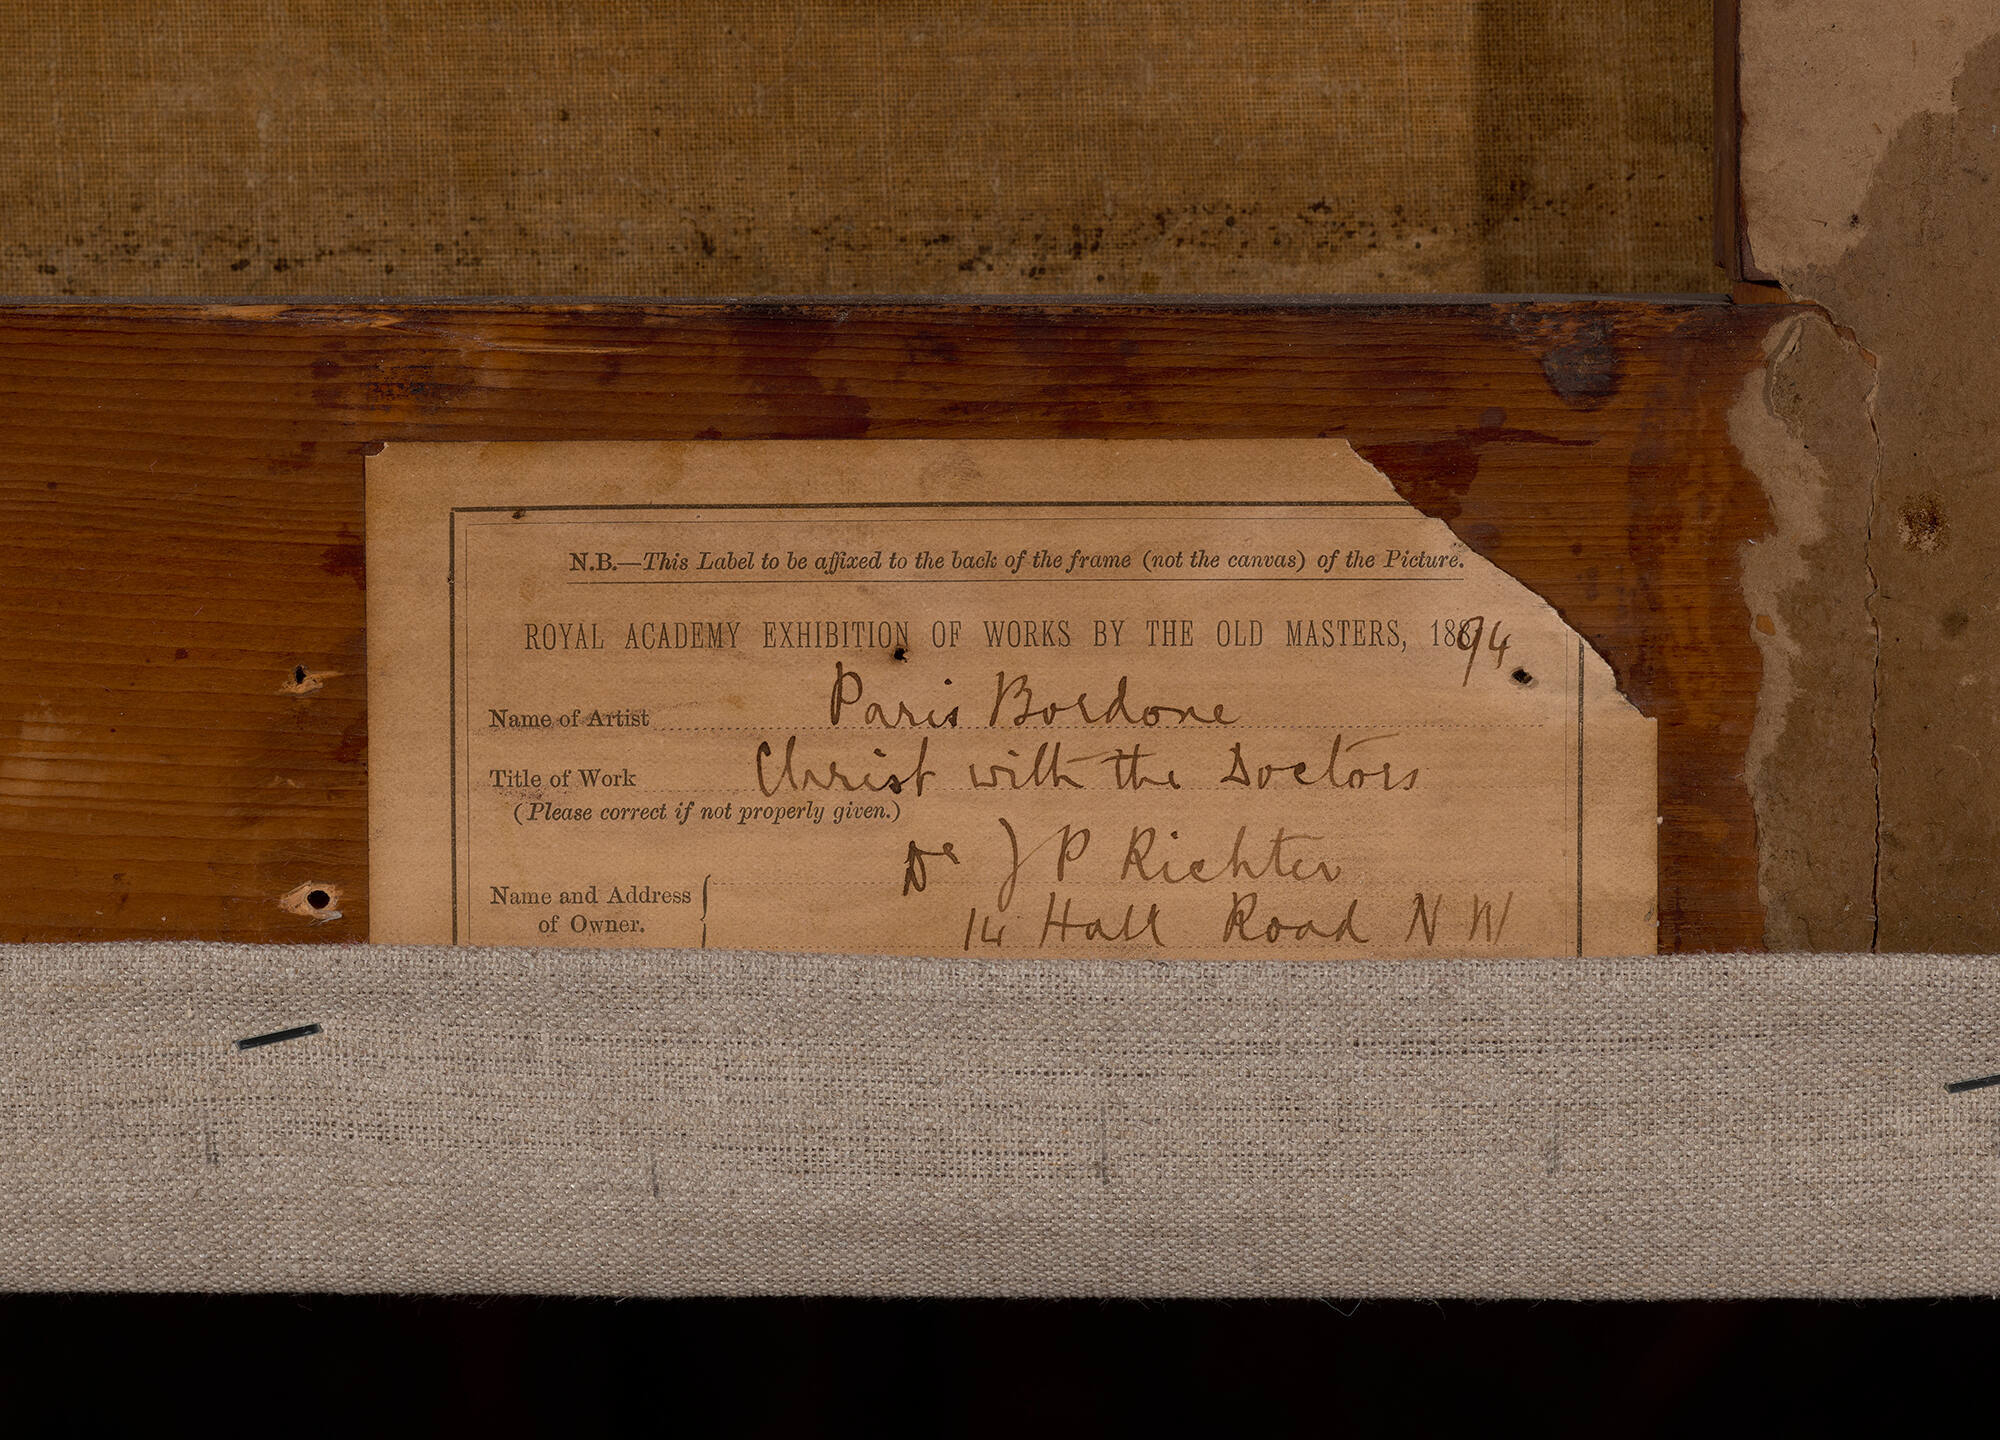 N.B.—This Label to be affixed to the back of the frame (not the canvas) of the Picture.
ROYAL ACADEMY EXHIBITION OF WORKS BY THE OLD MASTERS, 1894
Name of Artist Paris Bordone
Title of Work Christ with the Doctors
(Please correct if not properly given.)
Dr J P Richter
Name and Address
of Owner.
14 Hall Road N W